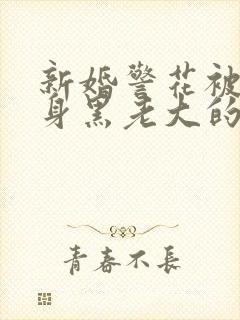 新婚警花被
身黑老大的
青春不长